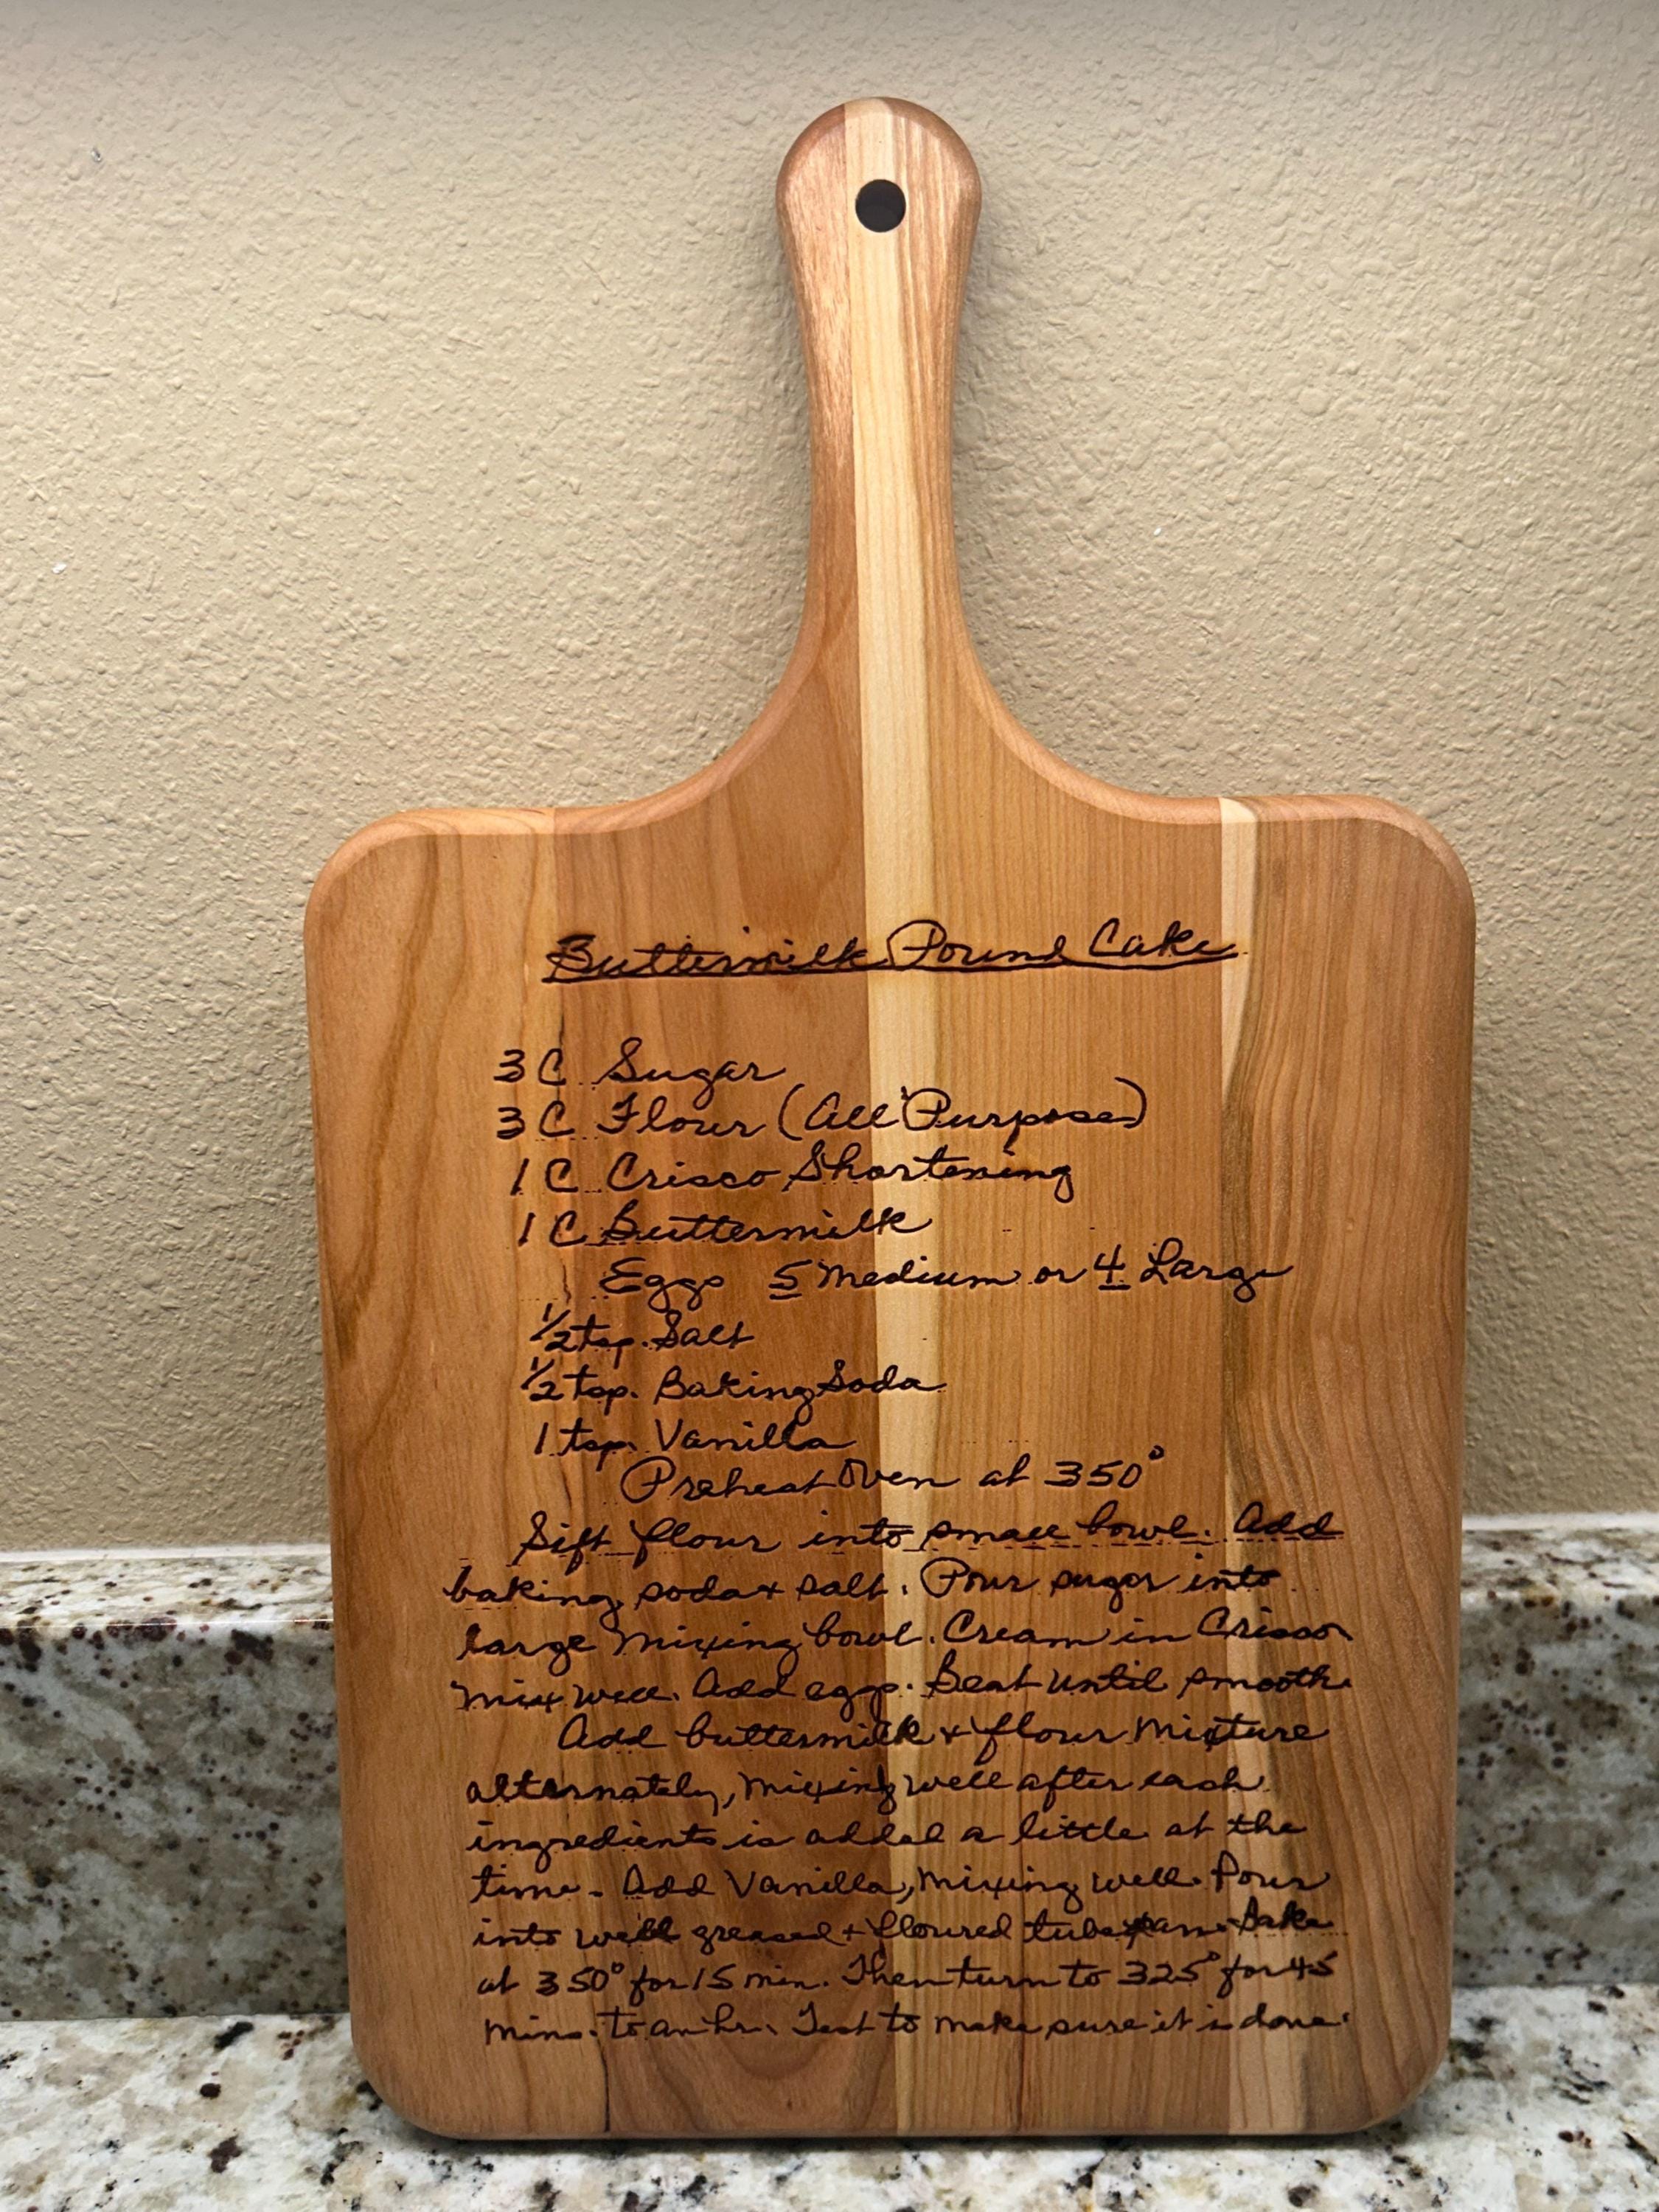 Buttermilk Pound Cake
3 C Sugar
3 C Flour (All Purpose)
1 C Crisco Shortening
1 C Buttermilk
Eggs 5 Medium or 4 Large
1/2 tsp. Salt
1/2 tsp. Baking Soda
1 tsp. Vanilla
Preheat Oven at 350°
Sift flour into small bowl. Add
baking soda + salt. Pour sugar into
large mixing bowl. Cream in Crisco
mix well. Add eggs. Beat until smooth.
Add buttermilk + flour mixture
alternately, mixing well after each
ingredients is added a little at the
time. Add Vanilla, mixing well. Pour
into well greased + floured tube pan. Bake
at 350° for 15 min. Then turn to 325° for 45
mins. to an hr. Test to make sure it is done.